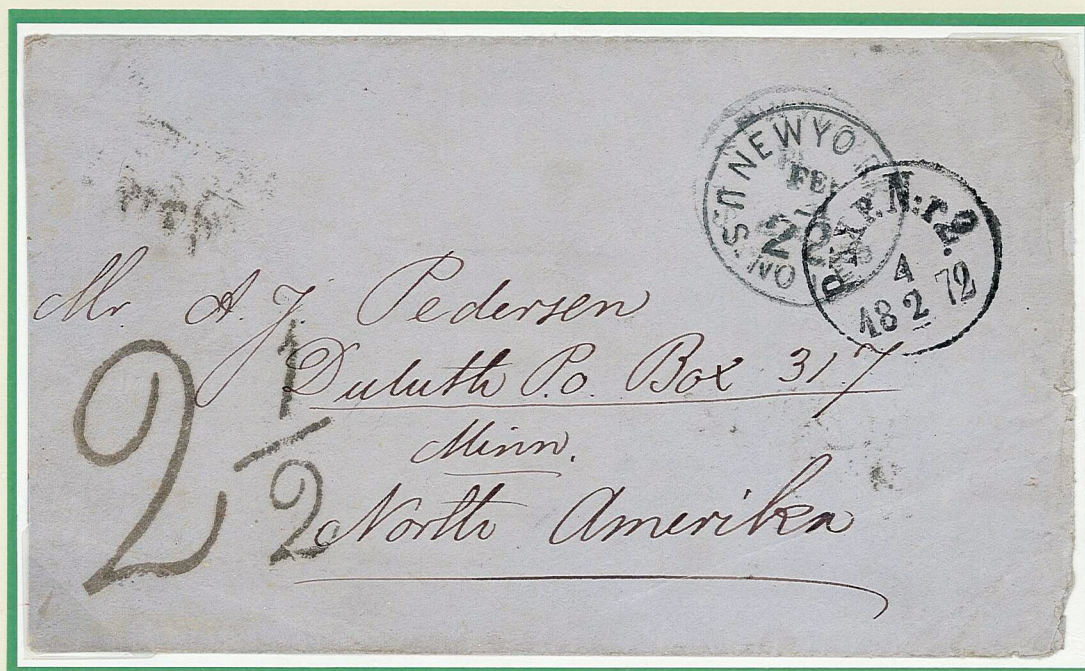 U.S. NOT NEW YO
FE
22
P.X.P. N:r 2.
4
18 2 72
Mr A. J. Pedersen
Duluth P.o. Box 317
Minn.
North Amerika
2 1/2